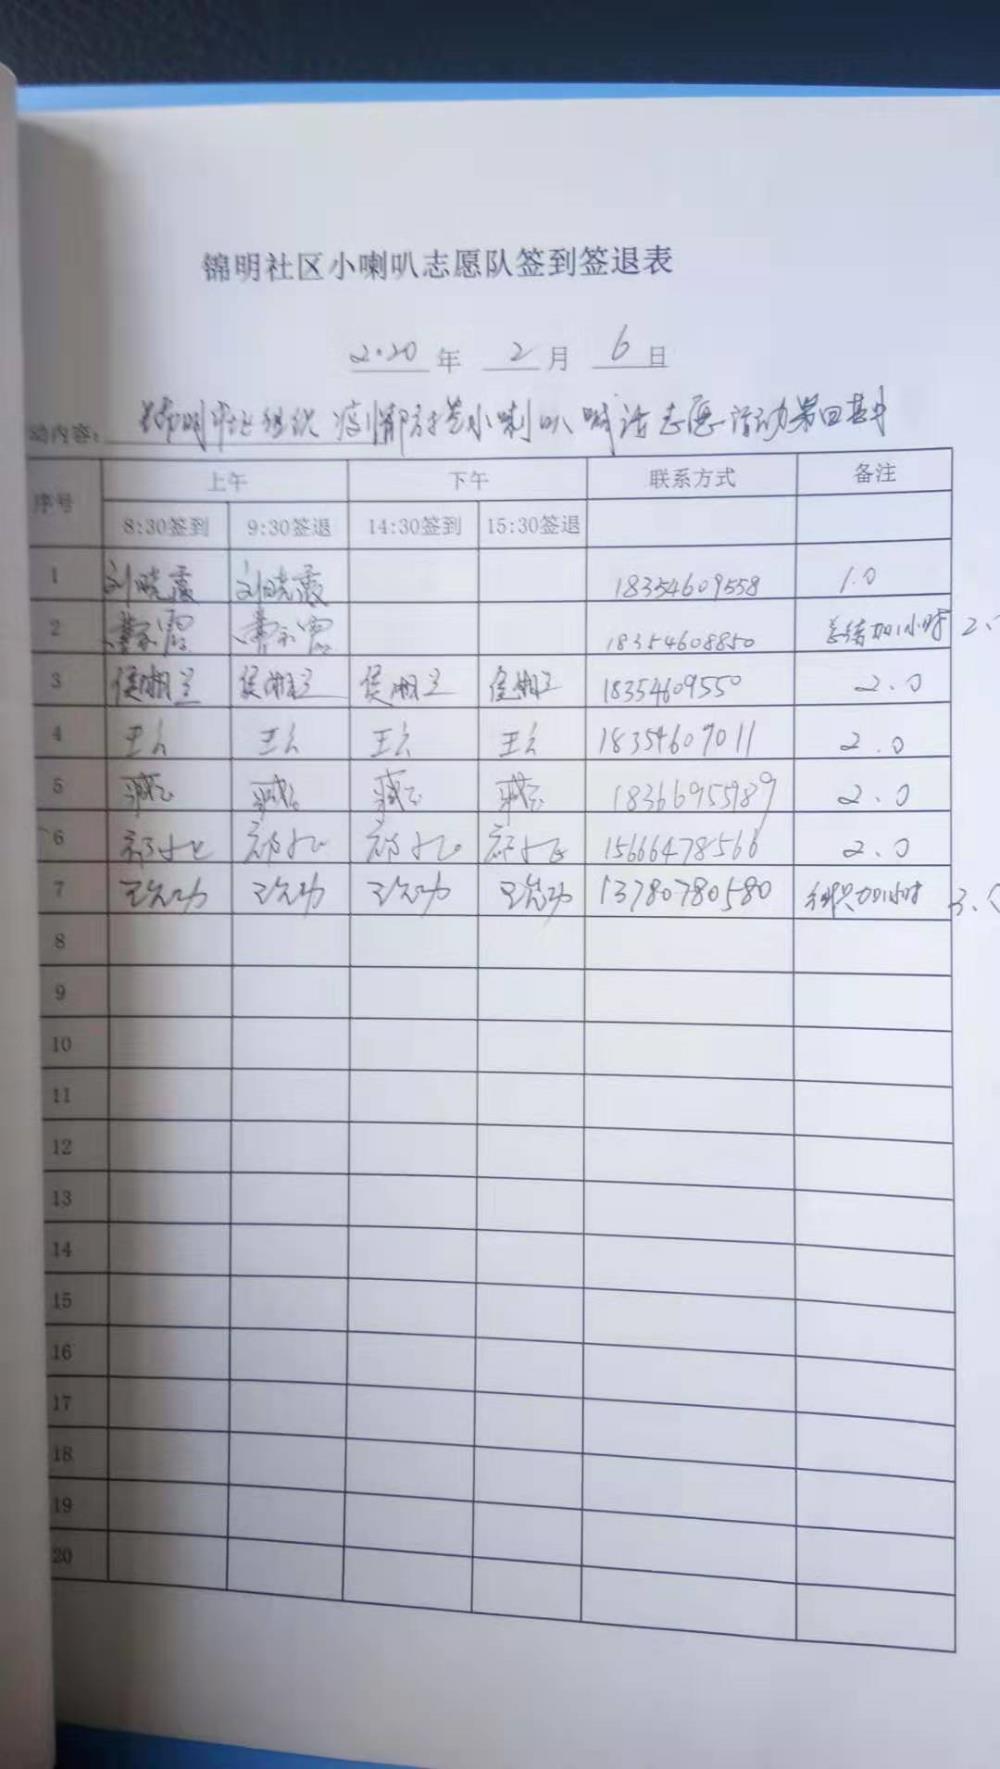 锦明社区小喇叭志愿队签到签退表
2020 年 2 月 6 日
动内容: 锦明社区组织疫情防控小喇叭喊话志愿活动第四期
序号 上午 下午 联系方式 备注
8:30签到 9:30签退 14:30签到 15:30签退
1 刘晓霞 刘晓霞 18354609558 1.0
2 18354608850 总结加1小时 2.
3 侯湘兰 侯湘兰 侯湘兰 侯湘兰 18354609550 2.0
4 18354609011 2.0
5 18366955989 2.0
6 15666478566 2.0
7 13780780580 组织加1小时 3.0
8
9
10
11
12
13
14
15
16
17
18
19
20